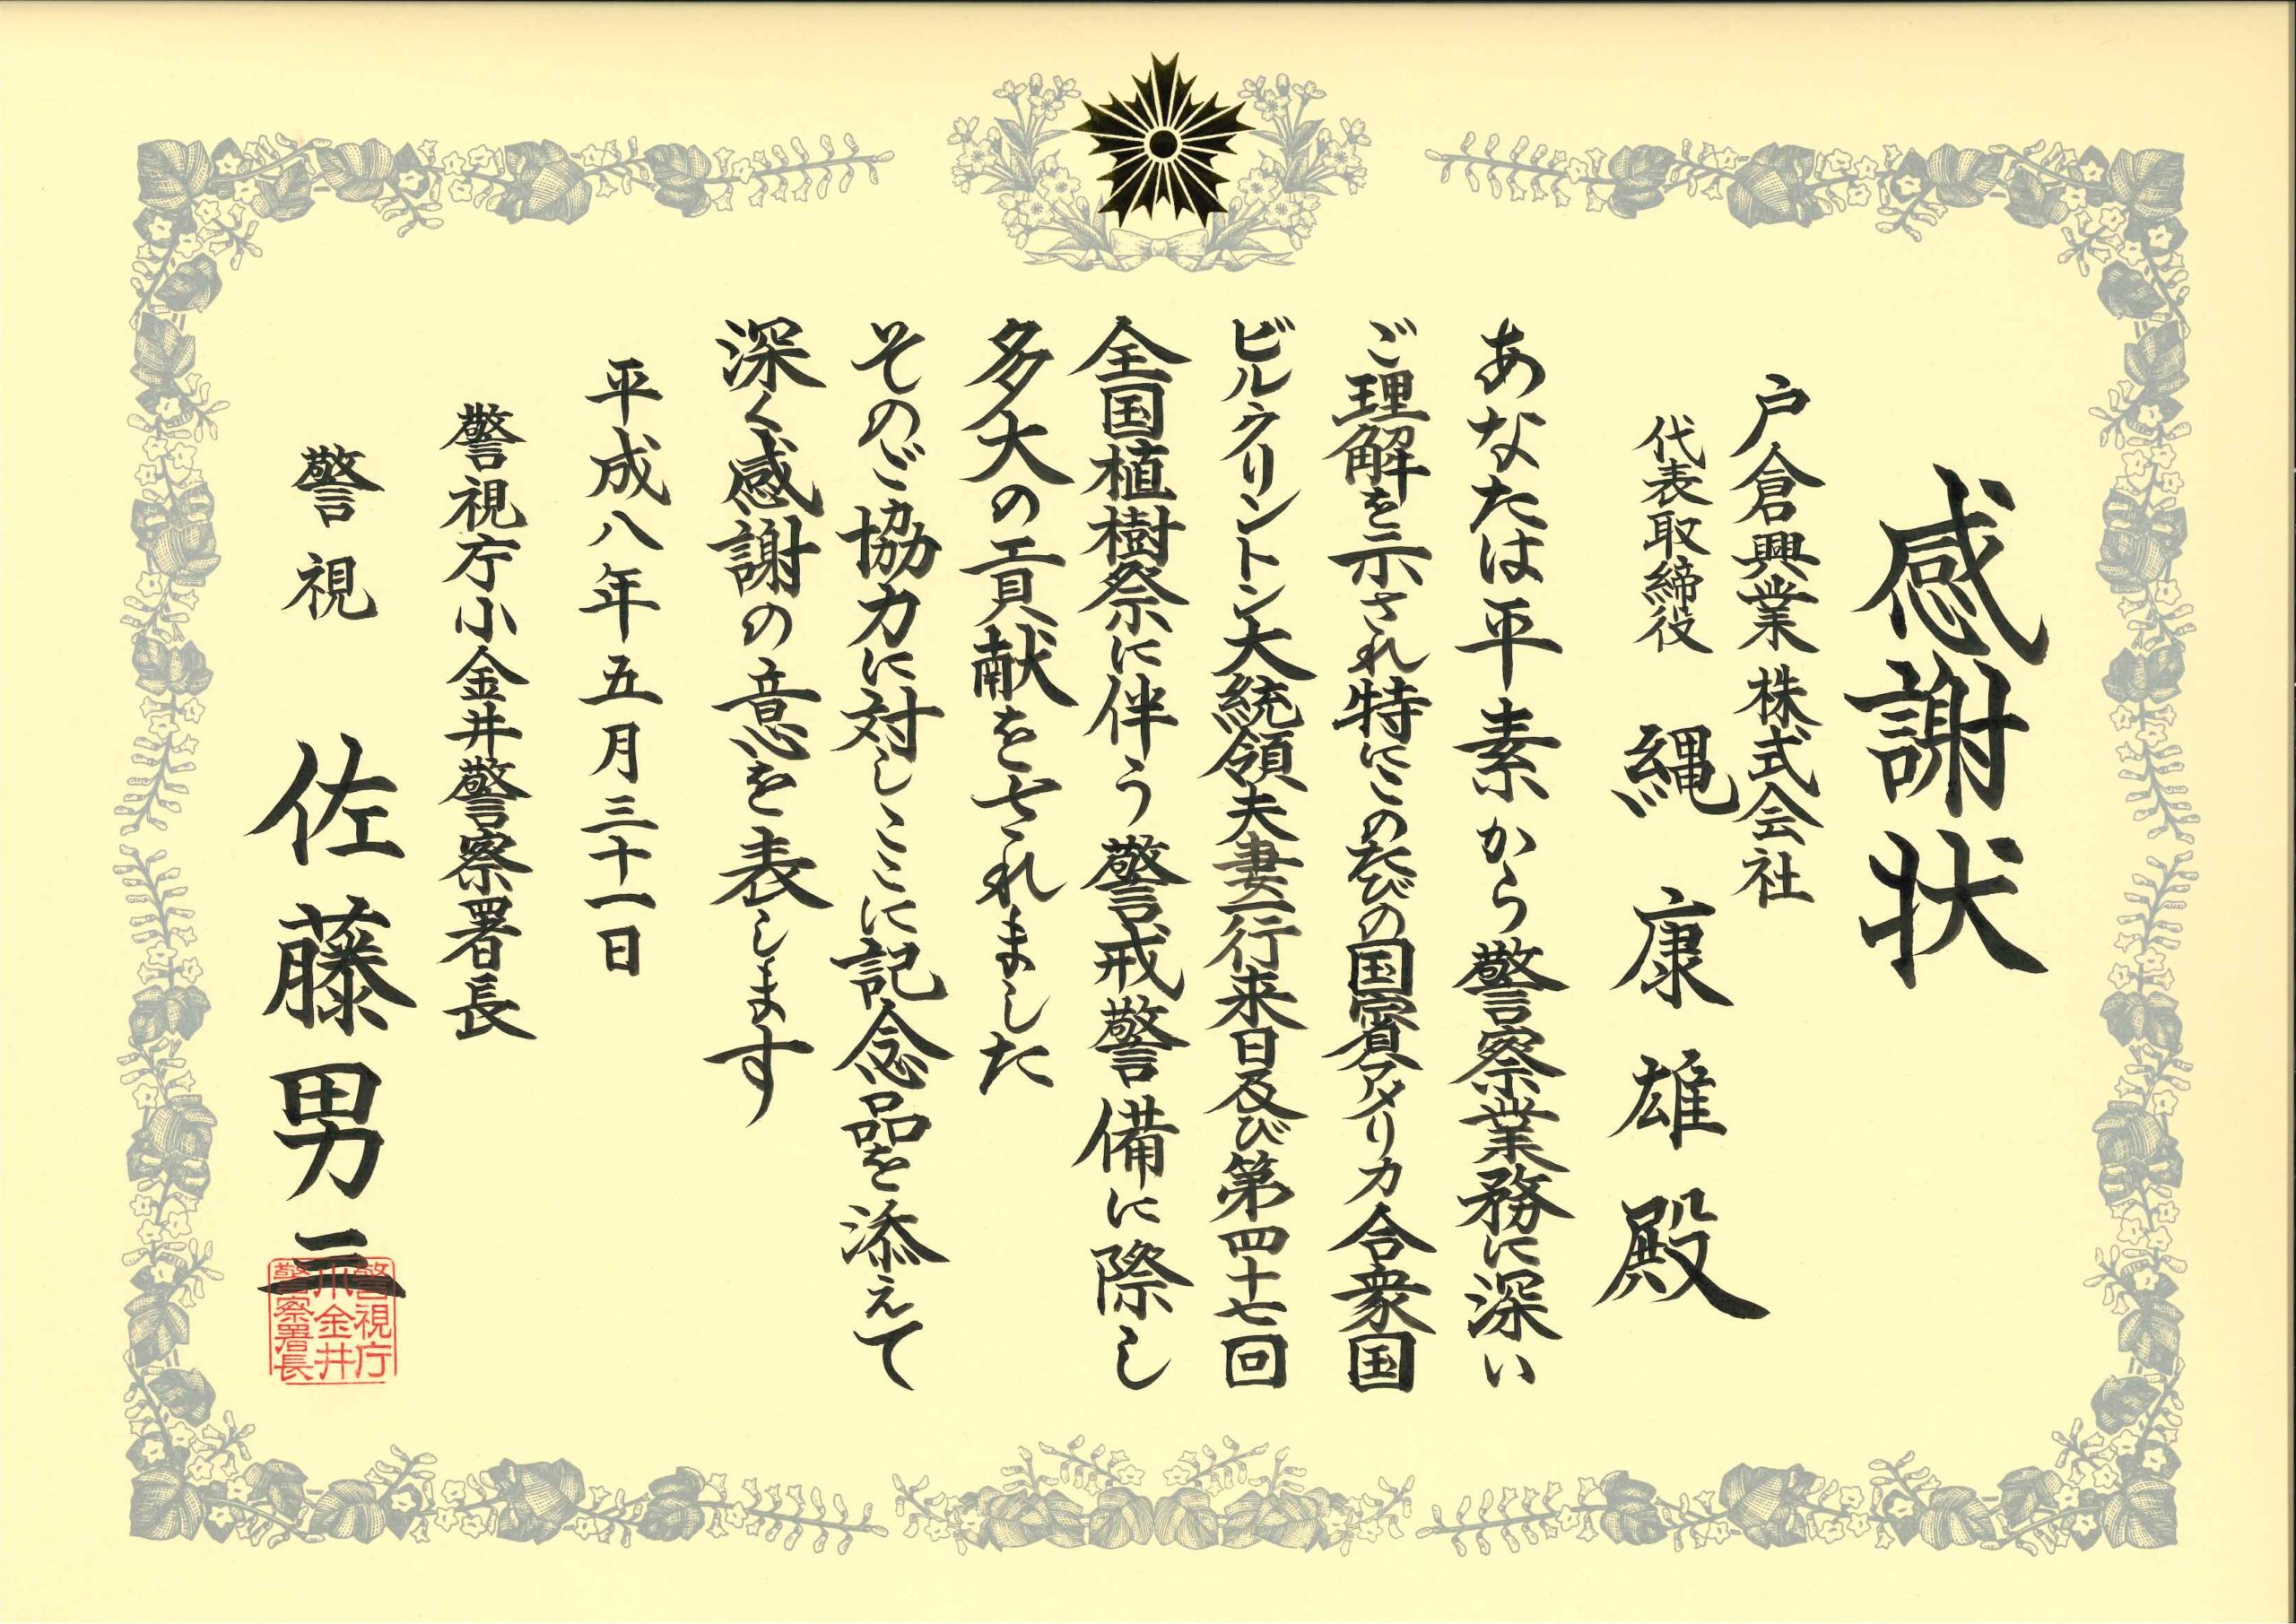 感謝状
戸倉興業株式会社
代表取締役 縄康雄殿
あなたは平素から警察業務に深い
ご理解を示され特にこのたびの国賓アメリカ合衆国
ビルクリントン大統領夫妻一行来日及び第四十七回
全国植樹祭に伴う警戒警備に際し
多大の貢献をなされました
そのご協力に対しここに記念品を添えて
深く感謝の意を表します
平成八年五月三十一日
警視庁小金井警察署長
警視 佐藤男二
警視庁
小金井
警察署長